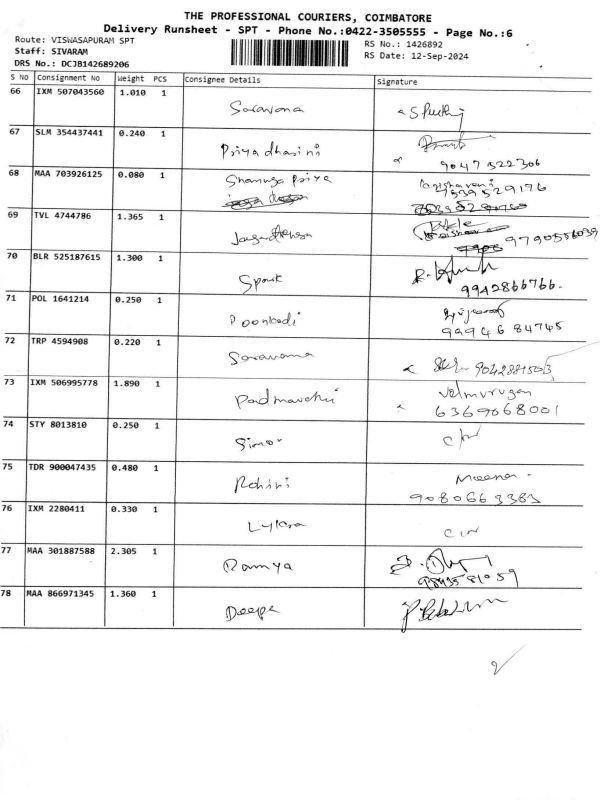 THE PROFESSIONAL COURIERS, COIMBATORE
Delivery Runsheet - SPT - Phone No.:0422-3505555 - Page No.:6
Route: VISWASAPURAM SPT
RS No.: 1426892
Staff: SIVARAM
RS Date: 12-Sep-2024
DRS No.: DCJB142689206
S NO Consignment No Weight PCS Consignee Details Signature
66 IXM 507043560 1.010 1
Saravana
67 SLM 354437441 0.240 1
Priyadharini
9047522306
68 MAA 703926125 0.080 1
Shanuga Priya
7339529176
69 TVL 4744786 1.365 1
9790556039
70 BLR 525187615 1.300 1
9942866766.
71 POL 1641214 0.250 1
Poonkodi
99946 84745
72 TRP 4594908 0.220 1
Saravana
73 IXM 506995778 1.890 1
Velmurugan
6369068001
74 STY 8013810 0.250 1
75 TDR 900047435 0.480 1
Rohini
Meena
9080663383
76 IXM 2280411 0.330 1
77 MAA 301887588 2.305 1
Ramya
78 MAA 866971345 1.360 1
Deepa